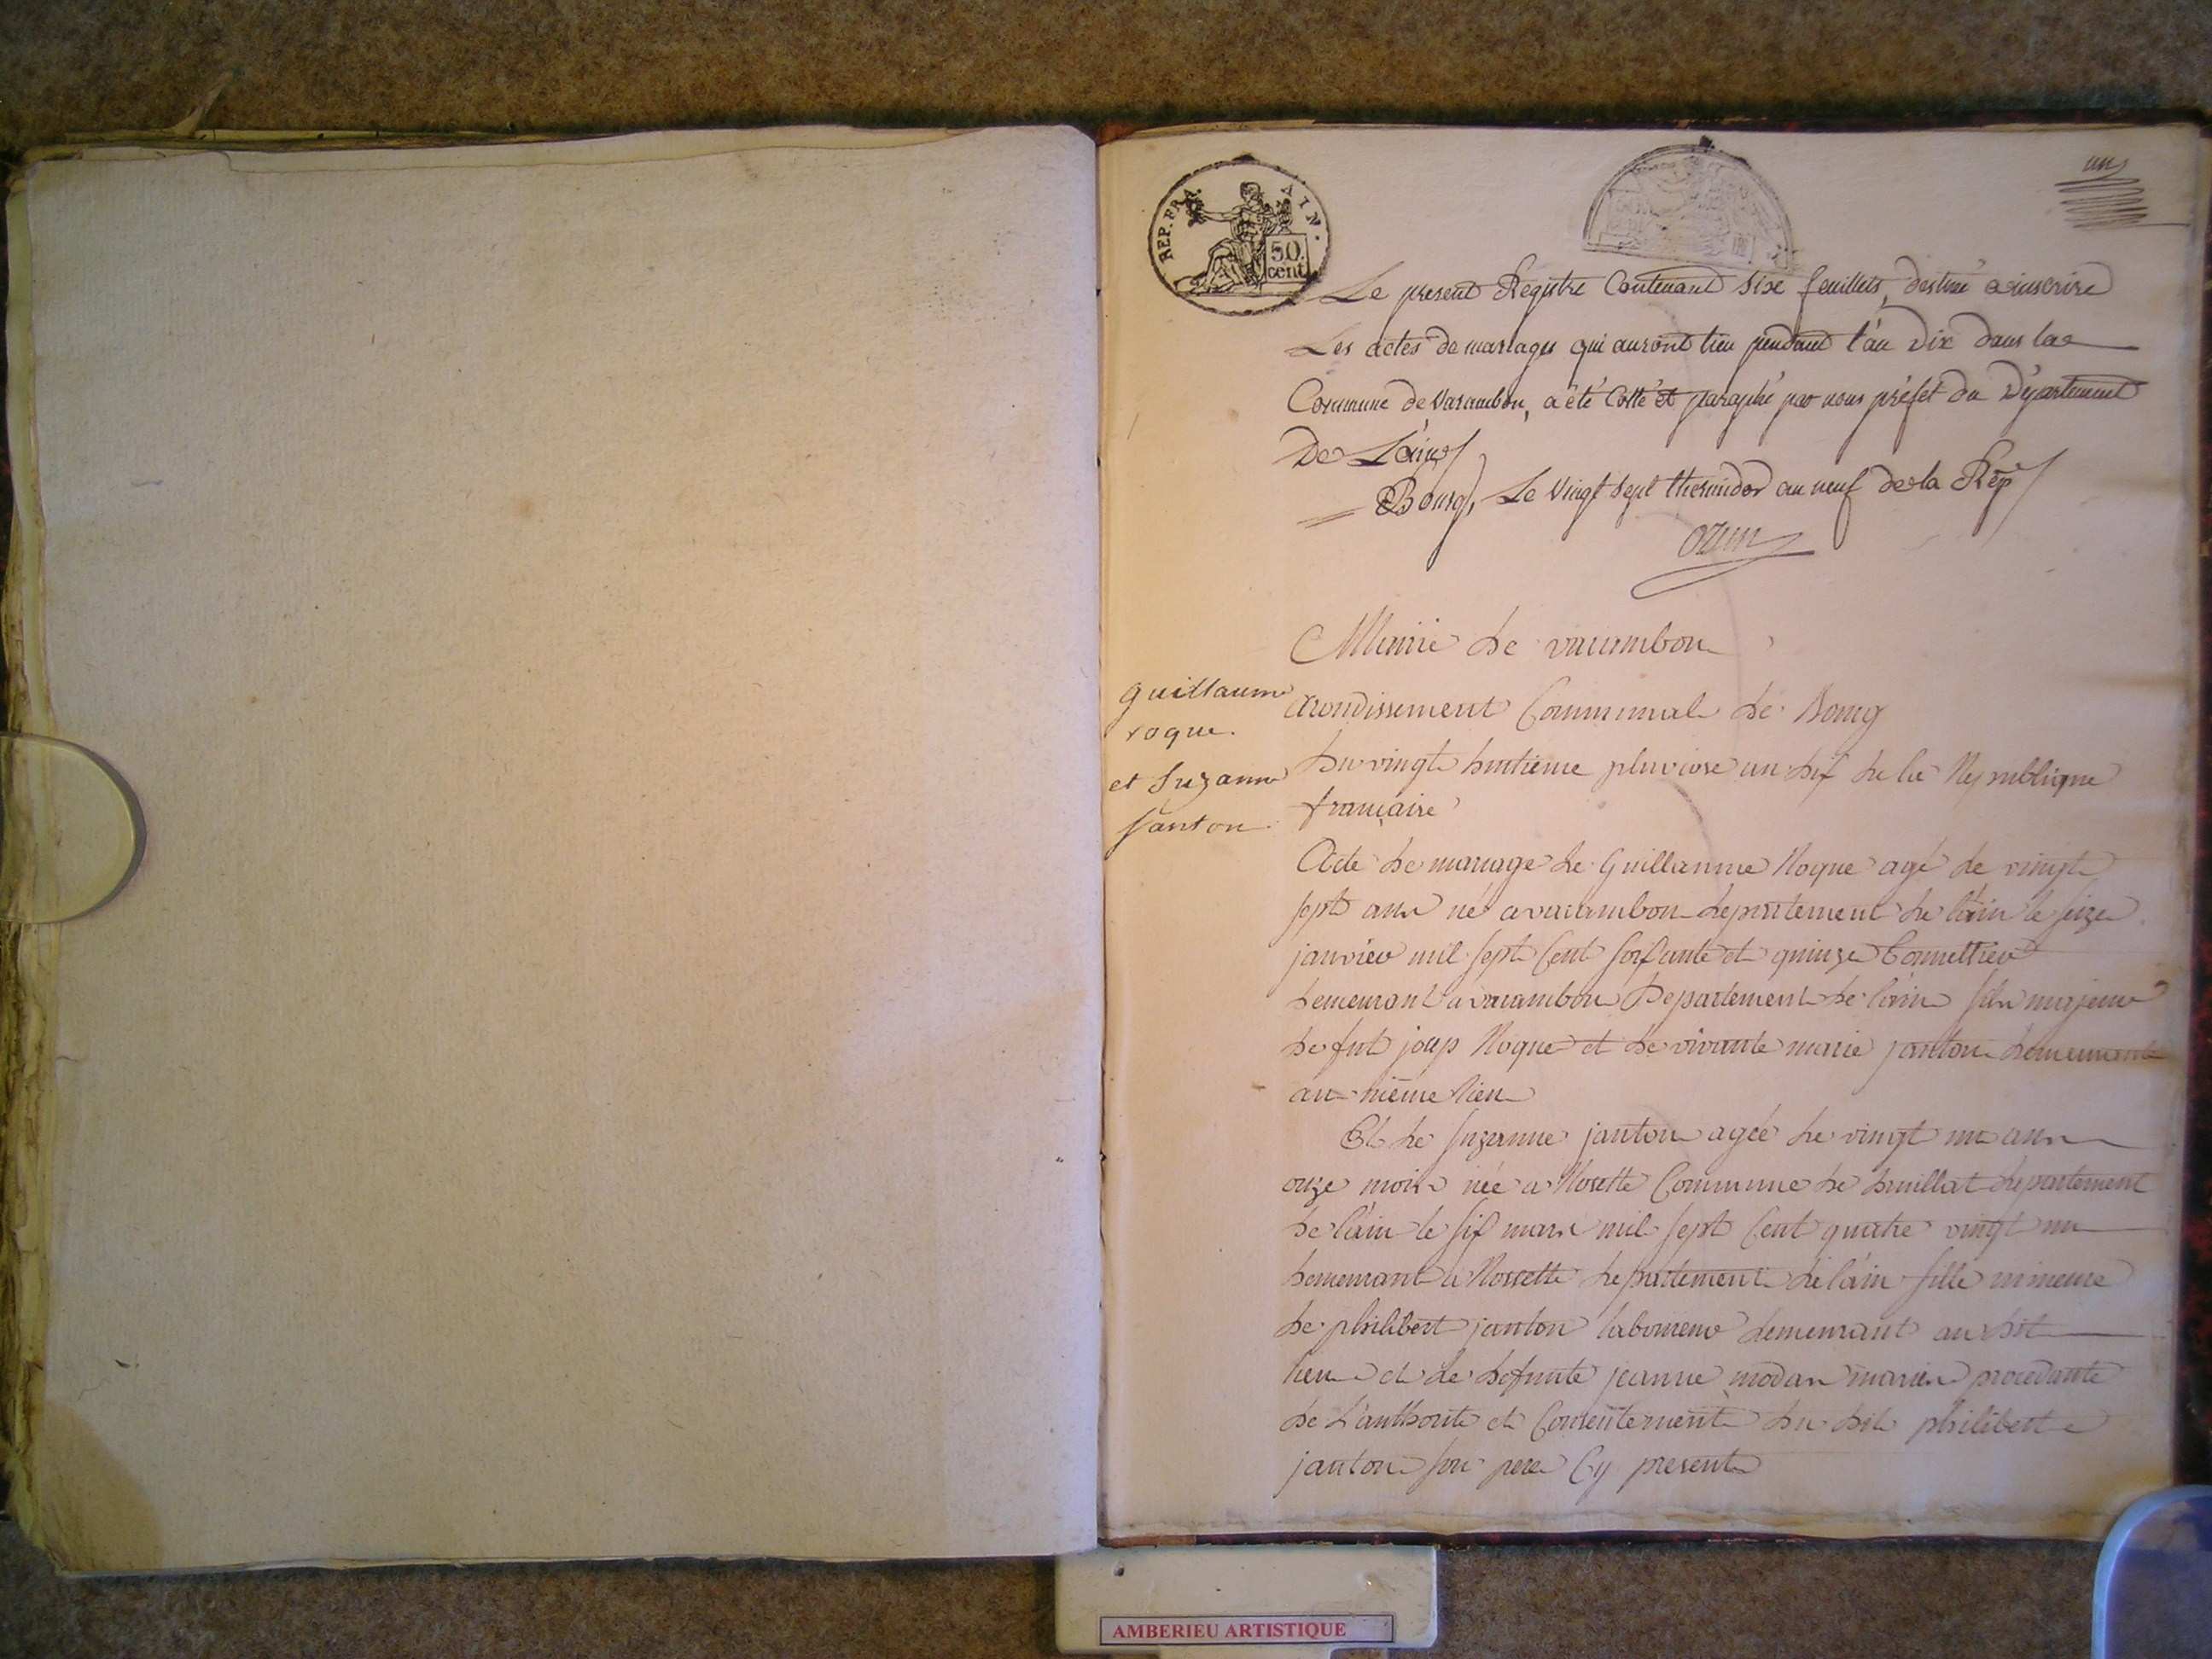 un
REP. FRA. AIN.
50 cent
Le present Registre Contenant six feuillets, destiné a inscrire
Les actes de mariages qui auront lieu pendant l'an dix dans la
Commune de Varambon, a été Cotté et paraphé par nous préfet du Département
De L'ain
Bourg, Le Vingt sept thermidor an neuf de la Rep
ozun
Mairie de varambon
arondissement Communal de Bourg
du vingt huitieme pluviose an dix de la Republique
française
guillaume
roque.
et suzanne
janton.
Acte de mariage de Guillaume Roque agé de vingt
sept ans né a varambon departement de l'ain le seize
janvier mil sept Cent soixante et quinze
demeurant a varambon Departement de l'ain fils majeur
de fut josep Roque et de vivante marie janton demeurante
au même lieu
Et de suzanne janton agée de vingt un ans
onze mois née a Rosette Commune de druillat departement
de l'ain le six mars mil sept Cent quatre vingt un
demeurant a Rossette departement de l'ain fille mineure
de philibert janton laboureur demeurant au dit
lieu et de defunte jeanne procedante
de L'authorite et Consentement du dit philibert
janton son pere Cy present
AMBERIEU ARTISTIQUE